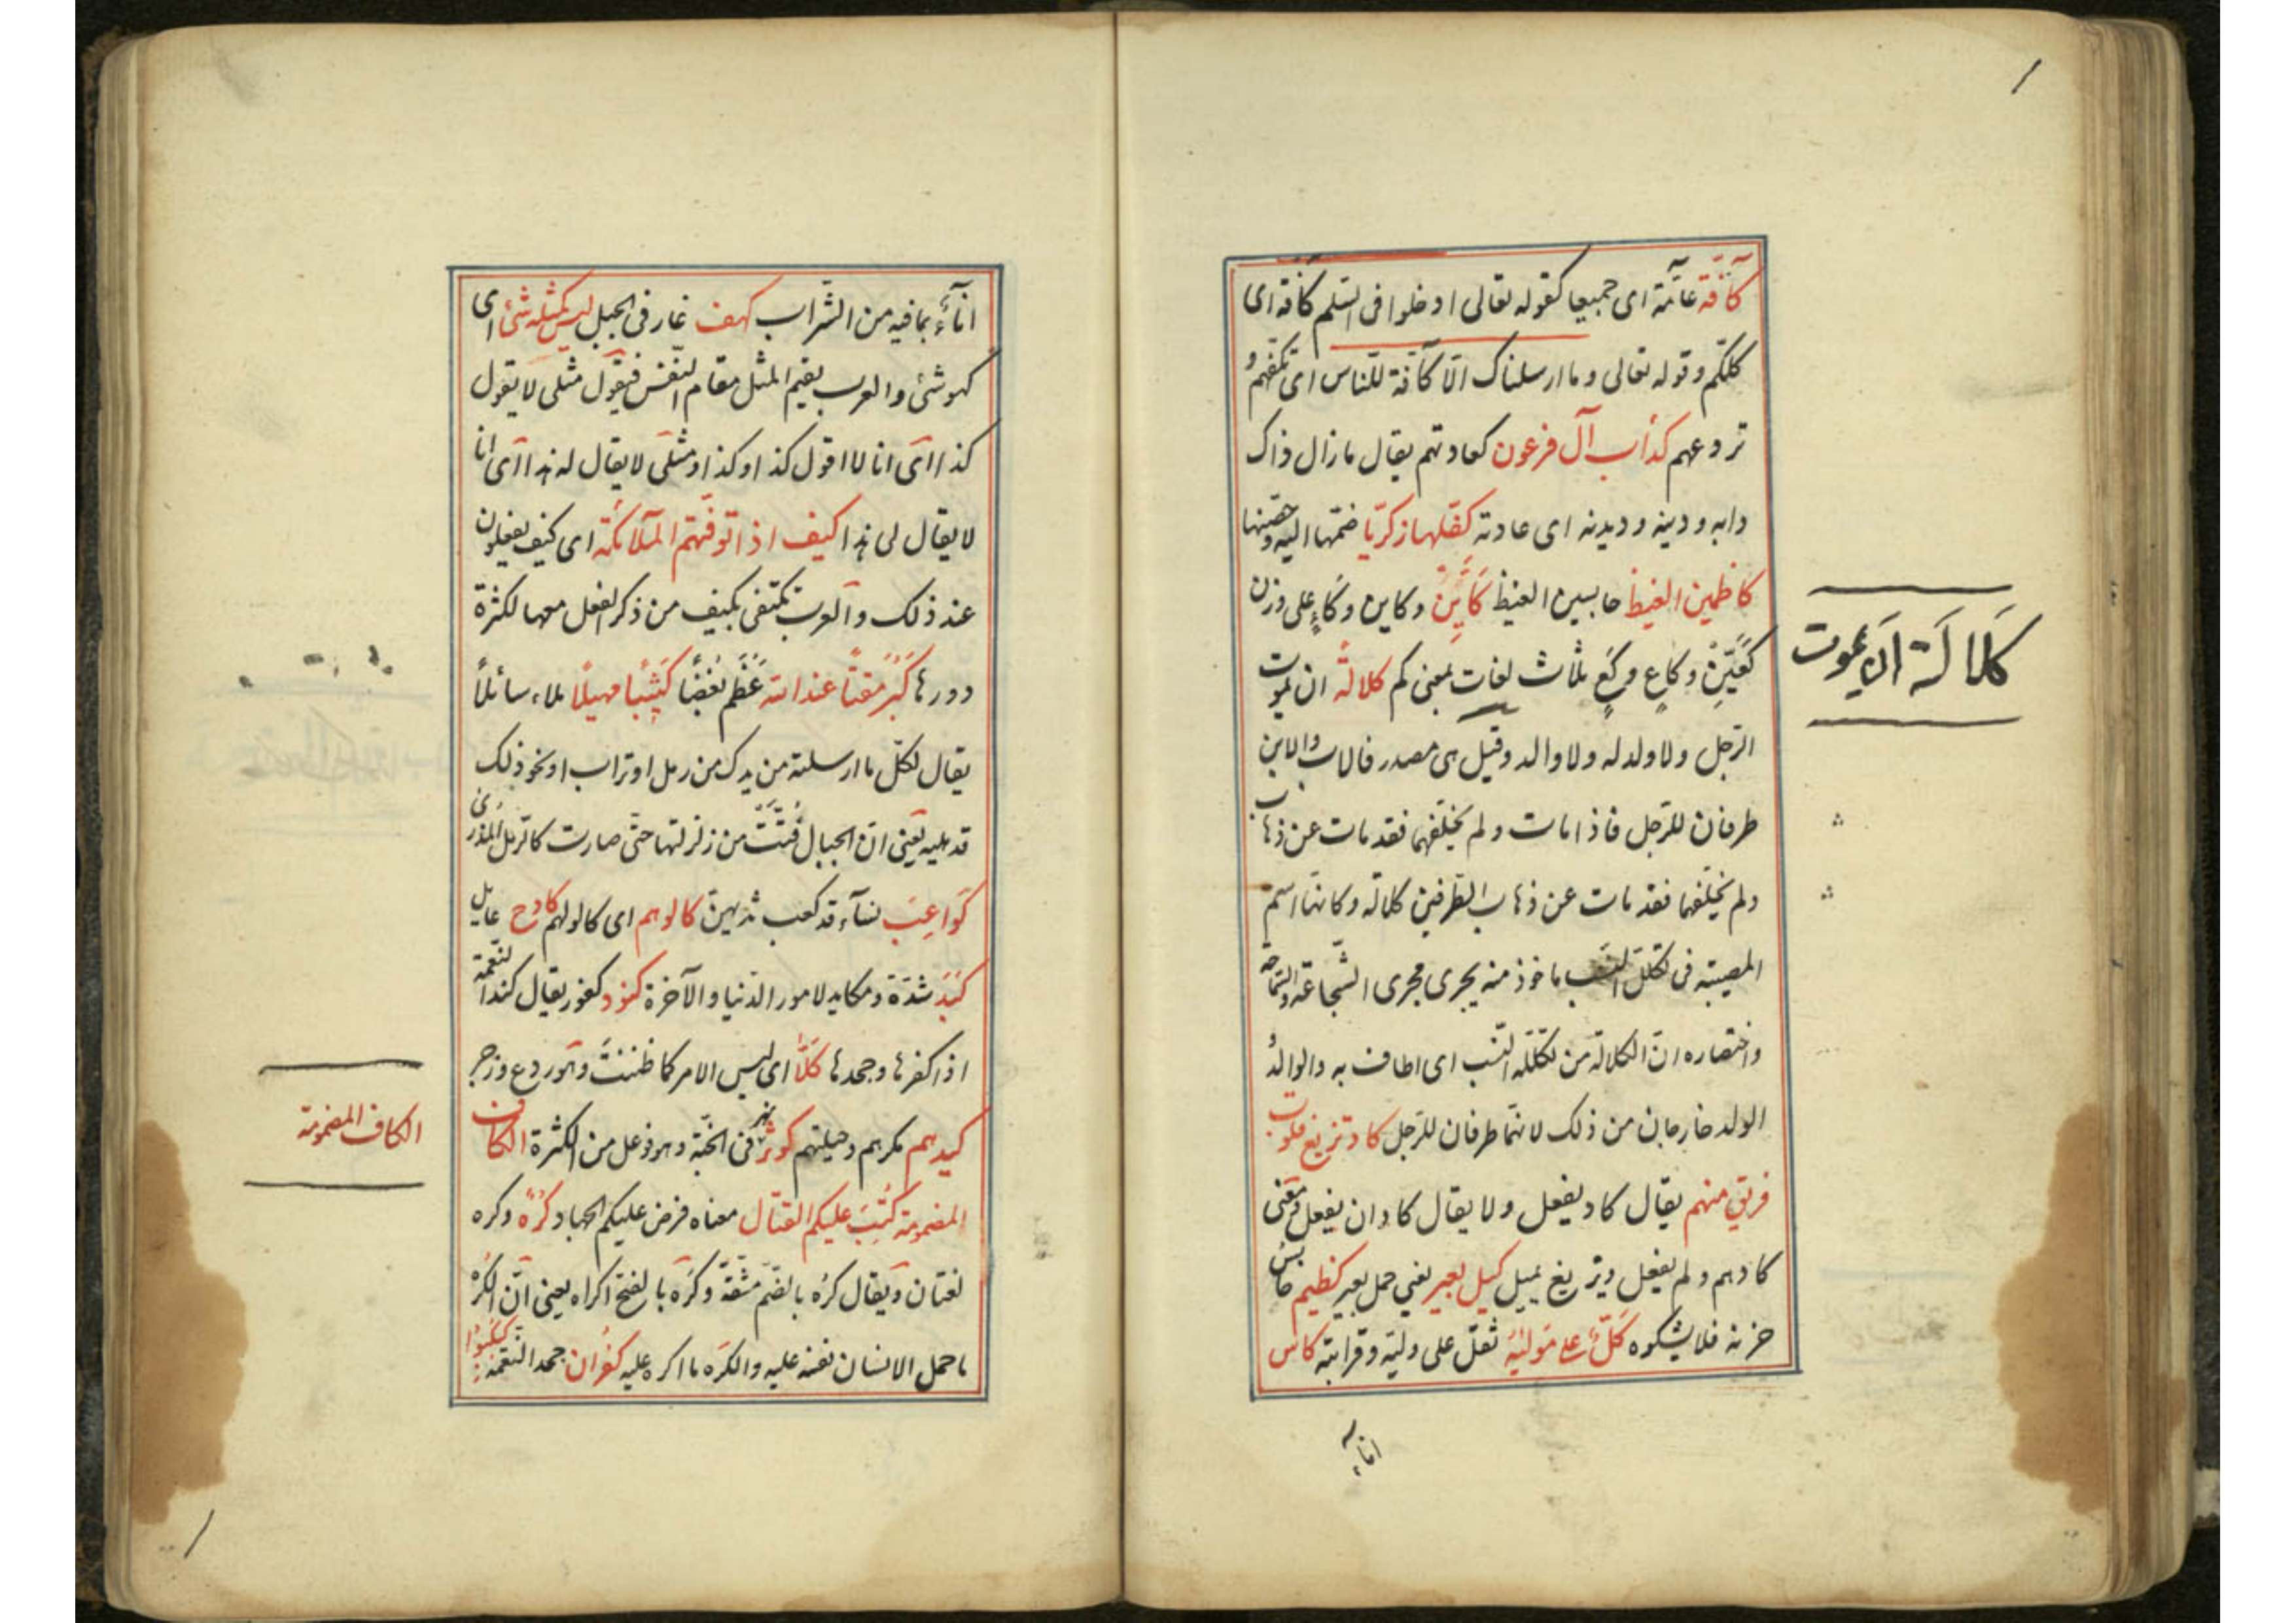 كآفّة عامّة اى جميعا كقوله تعالى ادخلوا فى السّلم كافة اى
كلكّم وقوله تعالى وما ارسلناك الّا كآفّة للنّاس اى تكفّهم و
تردعهم كدأب آل فرعون كعادتهم يقال ما زال ذاك
دابه ودينه وديدنه اى عادته كفّلها زكريّا ضمّها اليه وحصنها
كاظمين الغيظ حابسين الغيظ كَأَيِّنْ وكاين وكاءٍ على وزن
كَعَيِّنْ وكاعٍ وكَعٍ ثلاث لغات بمعنى كم كلالةً ان يموت
الرّجل ولا ولد له ولا والد وقيل هى مصدر فالاب والابن
طرفان للرّجل فاذا مات ولم يخلّفهما فقد مات عن ذهاب
ولم يخلّفهما فقد مات عن ذهاب الطّرفين كلالة وكانّها اسم
المصيبة فى تكلّل النّسب ماخوذ منه يجرى مجرى الشّجاعة والسّماحة
واختصاره انّ الكلالة من تكلّله النّسب اى اطاف به والوالدُ
الولد خارجان من ذلك لانّهما طرفان للرّجل كاد تزيغ قلوب
فريق منهم يقال كاد يفعل ولا يقال كاد ان يفعل ومعنى
كاد هم ولم يفعل وتزيغ تميل كيل بعير يعنى حمل بعير كظيم حابسٌ
حزنه فلا يشكوه كَلٌّ على موليه ثقل على وليّه وقرابته كاس
انآء
كَلالَة ان يموت
انآءٌ بما فيه من الشّراب كهف غار فى الجبل ليس كمثله شئ اى
كهو شئ والعرب يقيم المثل مقام النّفس فيقول مثلى لا يقول
كذا اى انا لا اقول كذا وكذا ومثلى لا يقال له هذا اى انا
لا يقال لى هذا كيف اذا توفّتهم الملآئكة اى كيف يفعلون
عند ذلك والعرب تكتفى بكيف من ذكر الفعل معها لكثرة
دورها كَبُرَ مقتًا عند الله عَظُم بُغْضًا كَثِيبًا مهيلًا ملاء سائلاً
يقال لكلّ ما ارسلته من يدك من رمل او تراب او نحو ذلك
قد هلته يعنى انّ الجبال فُتِّتَتْ من زلزلتها حتّى صارت كالرّمل المذرى
كَوَاعِبَ نسآء قد كعب ثديهنّ كالوهم اى كالوا لهم كادح عامل
كَبَدٍ شدّة ومكابد لامور الدّنيا والآخرة كنود كفور يقال كند النّعمة
اذا كفرها وجحدها كَلَّا اى ليس الامر كما ظننتَ وهو ردع وزجر
كيدهم مكرهم وحيلتهم كوثر نهر فى الجنّة وهو فوعل من الكثرة الكاف
المضمومة كُتِبَ عليكم القتال معناه فرض عليكم الجهاد كُرْهٌ وكره
لغتان ويقال كرُه بالضّم مشقّة وكَرَه بالفتح اكراه يعنى انّ الكُرْه
ما حمل الانسان نفسه عليه والكَره ما اكره عليه كفران جحد النّعمة كبكبوا
الكاف المضمومة